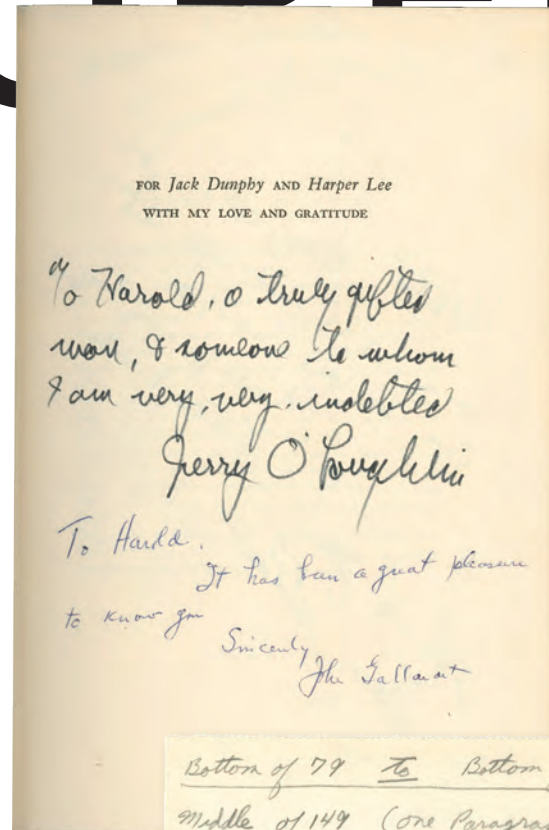 FOR Jack Dunphy AND Harper Lee
WITH MY LOVE AND GRATITUDE
To Harold, a truly gifted
man, & someone to whom
I am very, very indebted
Jerry O'Loughlin
To Harold.
It has been a great pleasure
to know you
Sincerely
John Gallaudet
Bottom of 79 To Bottom
Middle of 149 (one Paragra